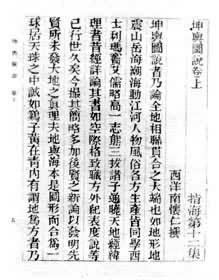 坤輿圖說卷上
指海第十二集
西洋南懷仁撰
坤輿圖說者乃論全地相聯貫合之大端也如地形地
震山岳海潮海動江河人物風俗各方生產皆同學西
士利瑪竇艾儒略高一志熊三拔諸子通曉天地經緯
理者昔經詳論其書如空際格致職方外紀表度說等
已行世久矣今撮其簡略多加後賢之新論以發明先
賢所未發大地之真理夫地與海本是圓形而合為一
球居天球之中誠如雞子黃在青內有謂地為方者乃